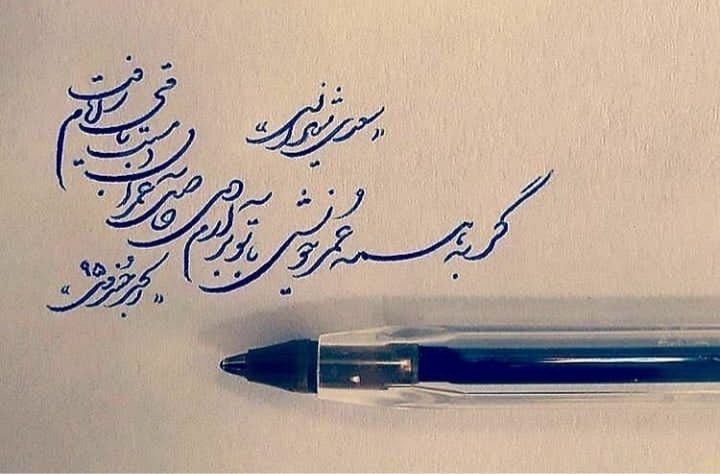 «سعدی شیرازی»
گر به همه عمر خویش با تو برآرم دمی
حاصل عمر آن دم است باقی ایام رفت
۹۵